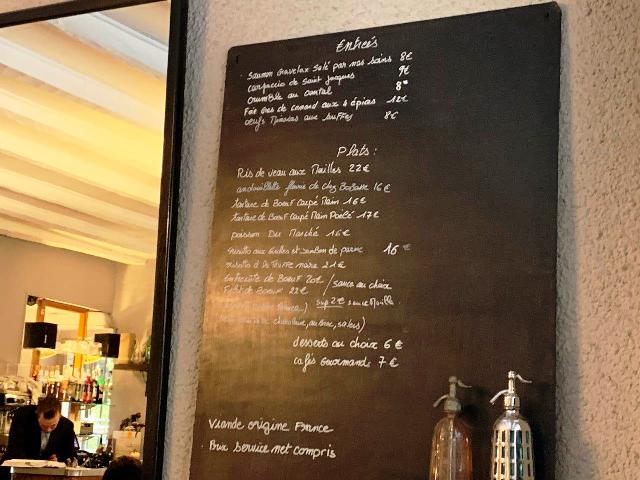 Entrées
Saumon Gravelax Salé par nos soins 8€
Carpaccio de Saint Jacques 9€
Crumble au Cantal 8€
Foie Gras de canard aux 4 épices 12€
Oeufs aux truffes 8€
Plats :
Ris de veau aux Morilles 22€
andouillette de chez 16€
tartare de Boeuf Coupé Main 16€
tartare de Boeuf Coupé Main Poêlé 17€
poisson Du Marché 16€
risotto aux et jambon de parme 16€
risotto à la truffe noire 21€
Entrecôte de Boeuf 20€ / sauce au choix
Filet de Boeuf 22€
sup 2€ sauce Morille
desserts au choix 6€
cafés Gourmands 7€
Viande origine France
Prix Service net compris